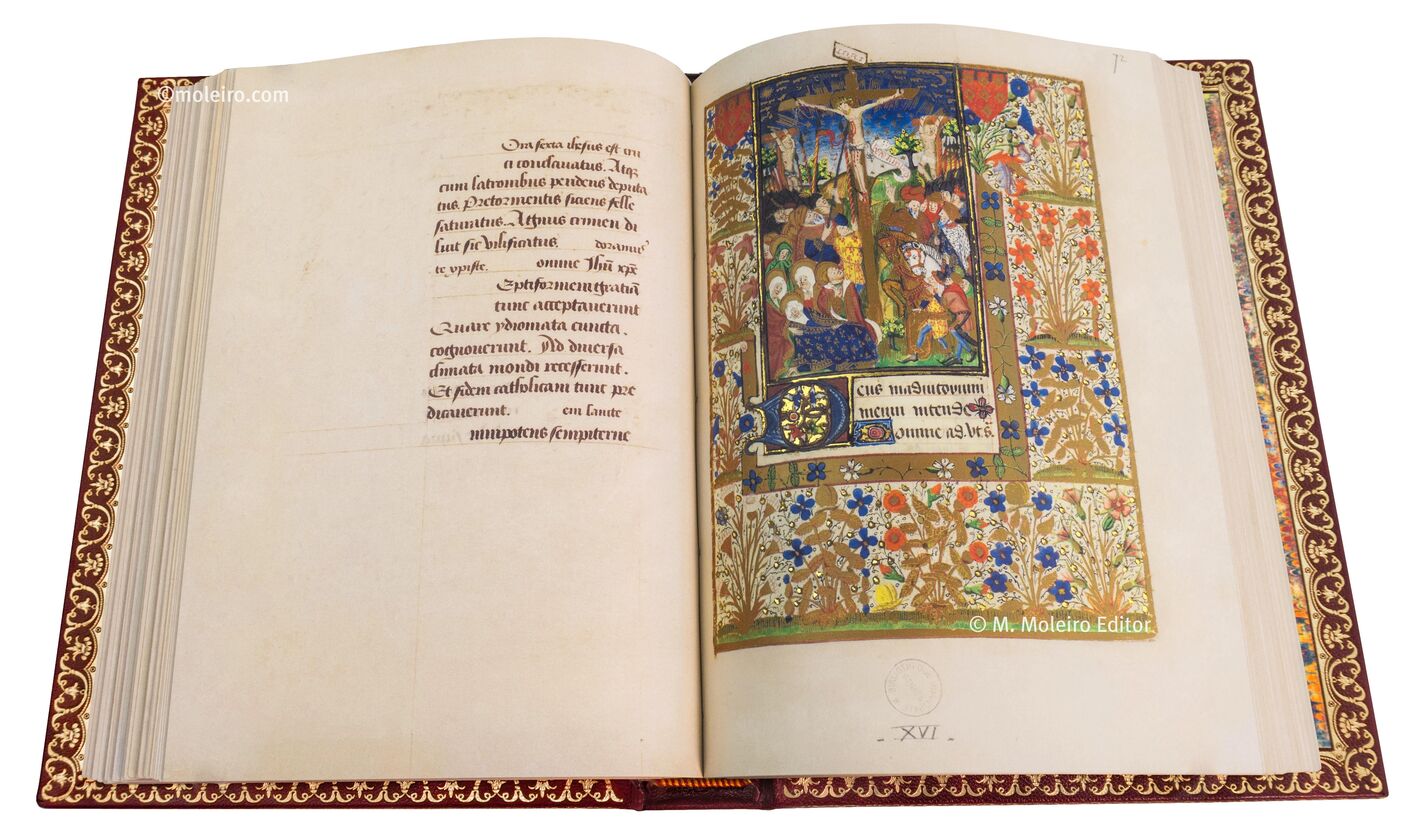 ©moleiro.com
Ora sexta ihesus est cru
ci conclauatus. Atq
cum latronibus pendens deputa
tus. Pretormentis siciens felle
saturatus. Agnus crimen di
luit sic vilificatus. doramus
te xpiste. omine Ihu xpe
Septiformem gratiā
tunc acceptauerunt
Quare ydiomata cuncta.
cognouerunt. Ad diuersa
climata mondi recesserunt.
Et fidem catholicam tunc pre
dicauerunt. em sancte
mnipotens sempiterne
72
Deus in adiutorium
meum intende
Domine ad. vts.
© M. Moleiro Editor
- XVI -